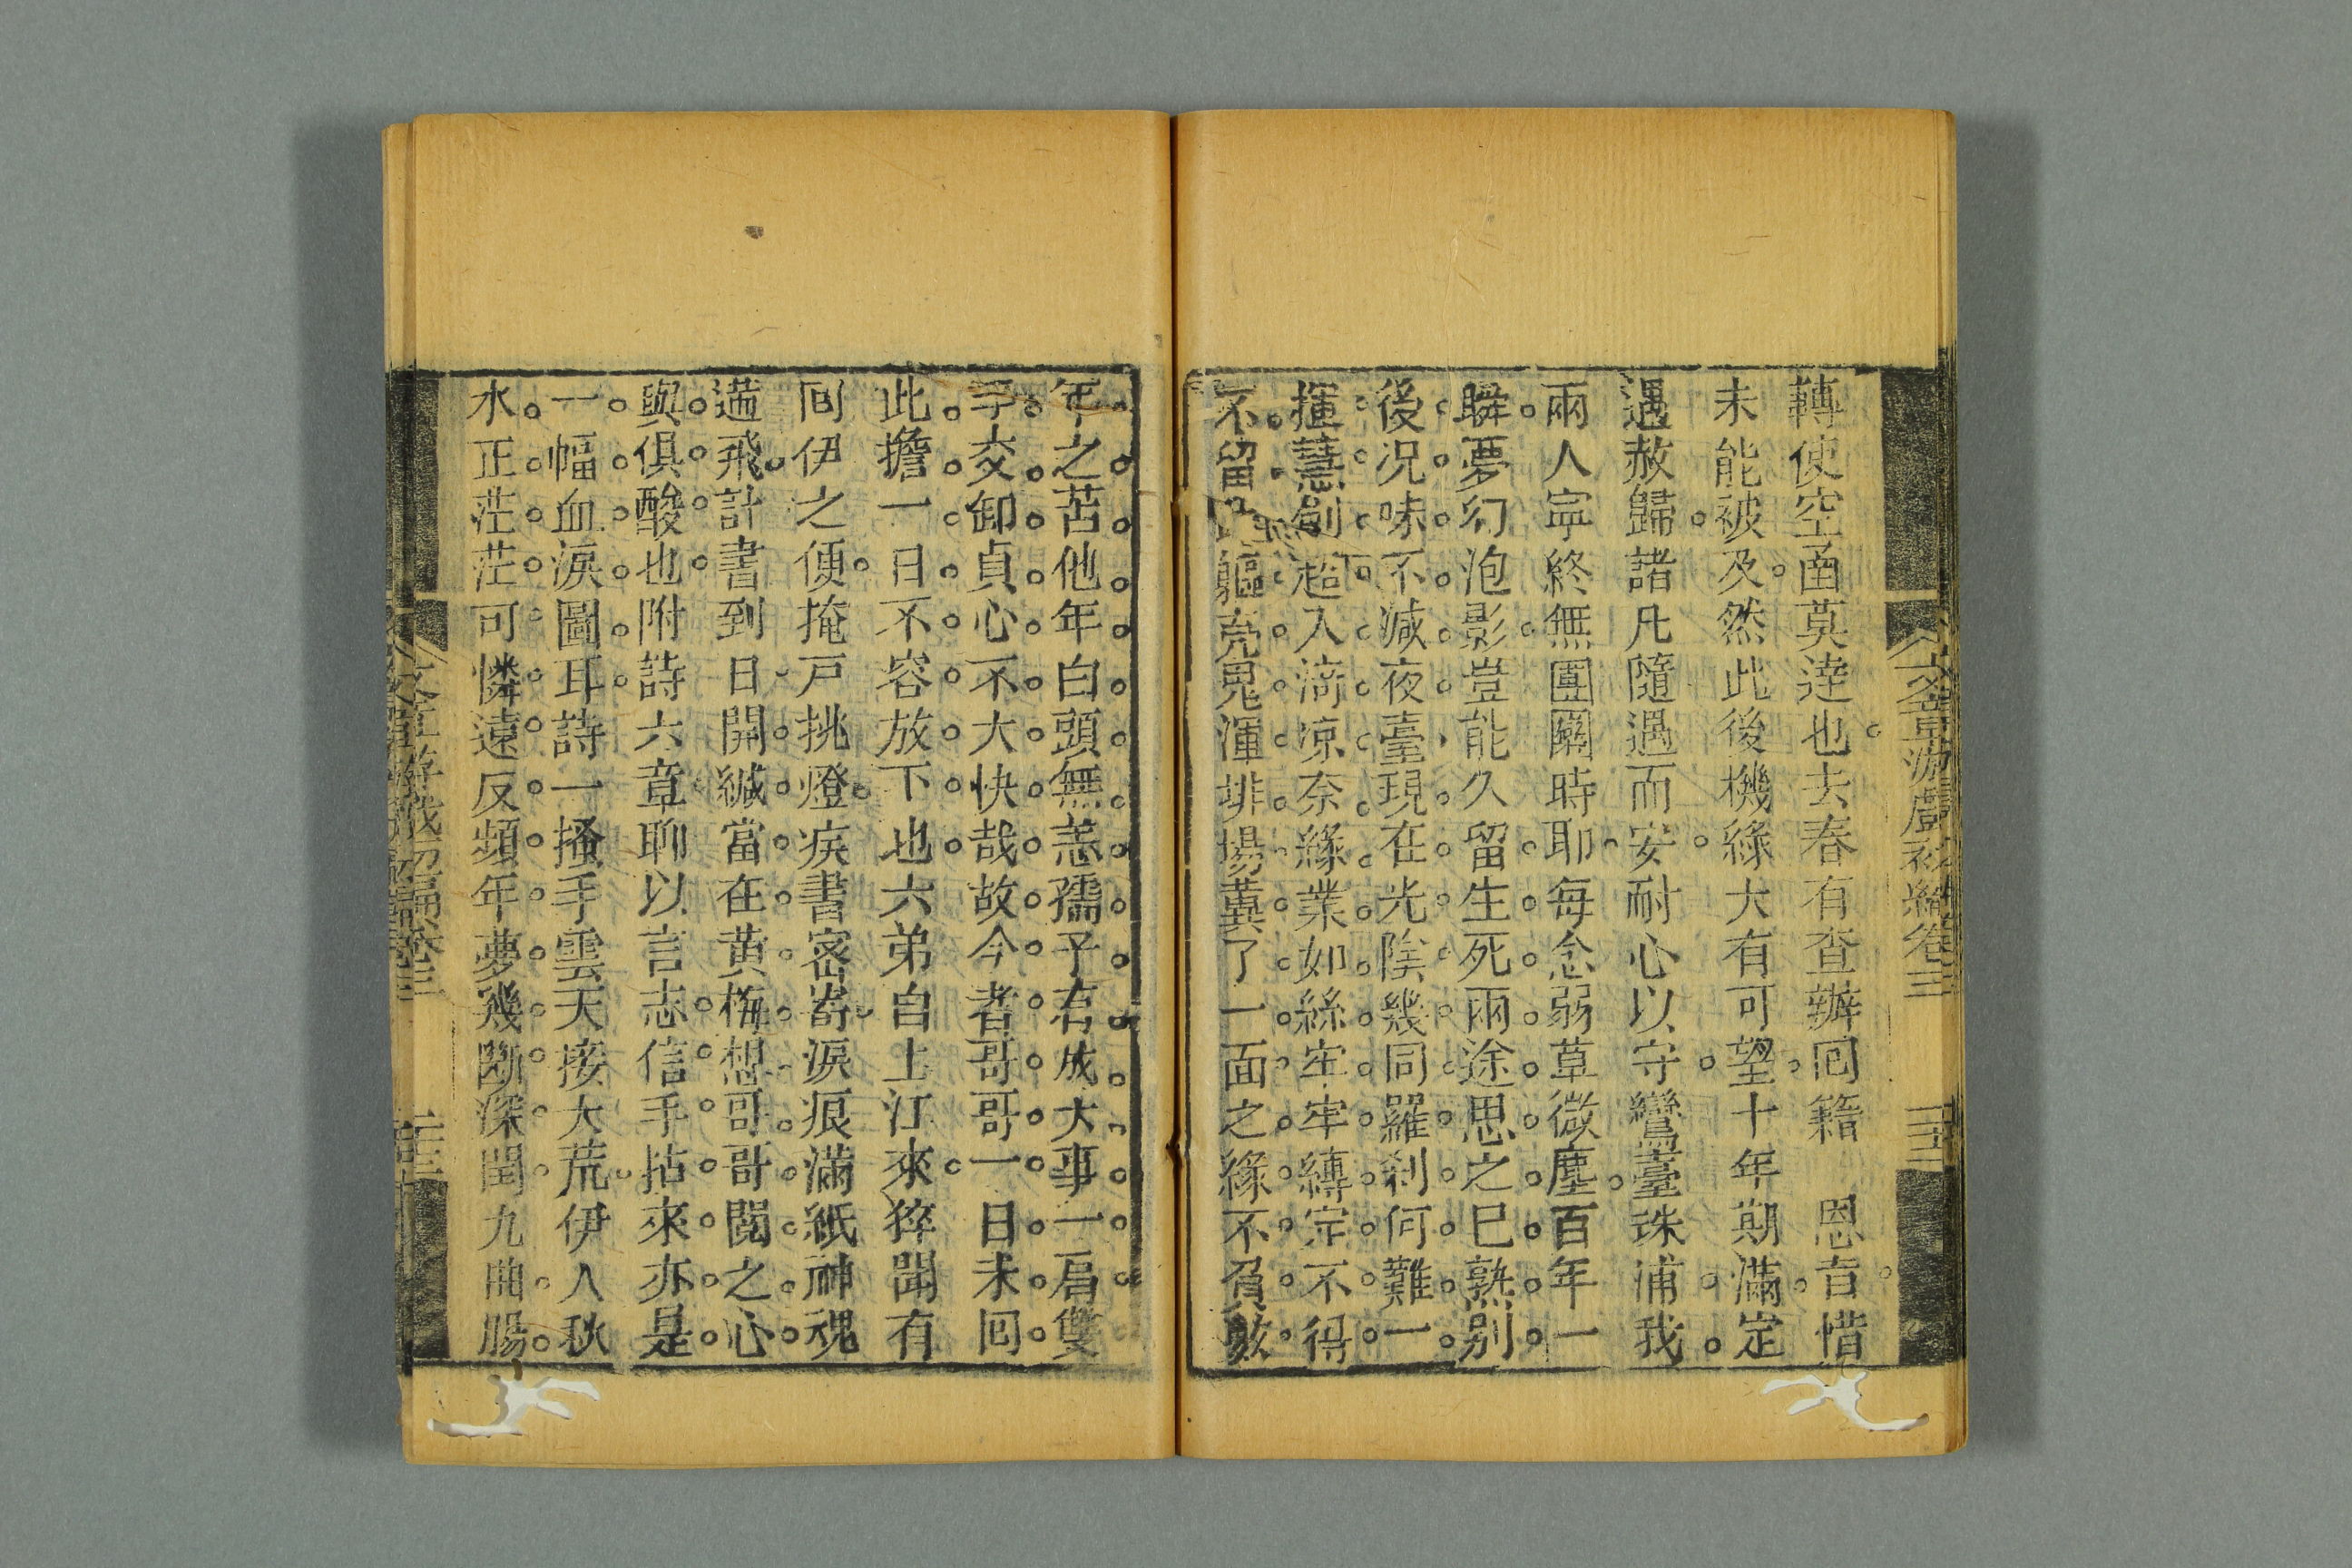 轉使空函莫達也去春有查辦囘籍　恩旨惜
未能被及然此後機緣大有可望十年期滿定
遇赦歸諸凡隨遇而安耐心以守鸞臺珠浦我
兩人寜終無團圞時耶每念弱草微塵百年一
瞬夢幻泡影豈能久留生死兩途思之巳熟别
後況味不減夜臺現在光陰幾同羅刹何難一
揮慧劍超入清凉奈緣業如絲牢牢縛定不得
不留軀虎冕渾排場冀了一面之緣不負數
年之苦他年白頭無恙孺子有成大事一肩雙
手交卸貞心不大快哉故今者哥哥一日未囘
此擔一日不容放下也六弟自上江來猝聞有
囘伊之便掩戸挑燈疾書密寄淚痕滿紙神魂
遄飛計書到日開緘當在黄梅想哥哥閲之心
與俱酸也附詩六章聊以言志信手拈來亦是
一幅血淚圖耳詩一搔手雲天接大荒伊人秋
水正茫茫可憐遠戍頻年夢幾斷深閨九曲腸